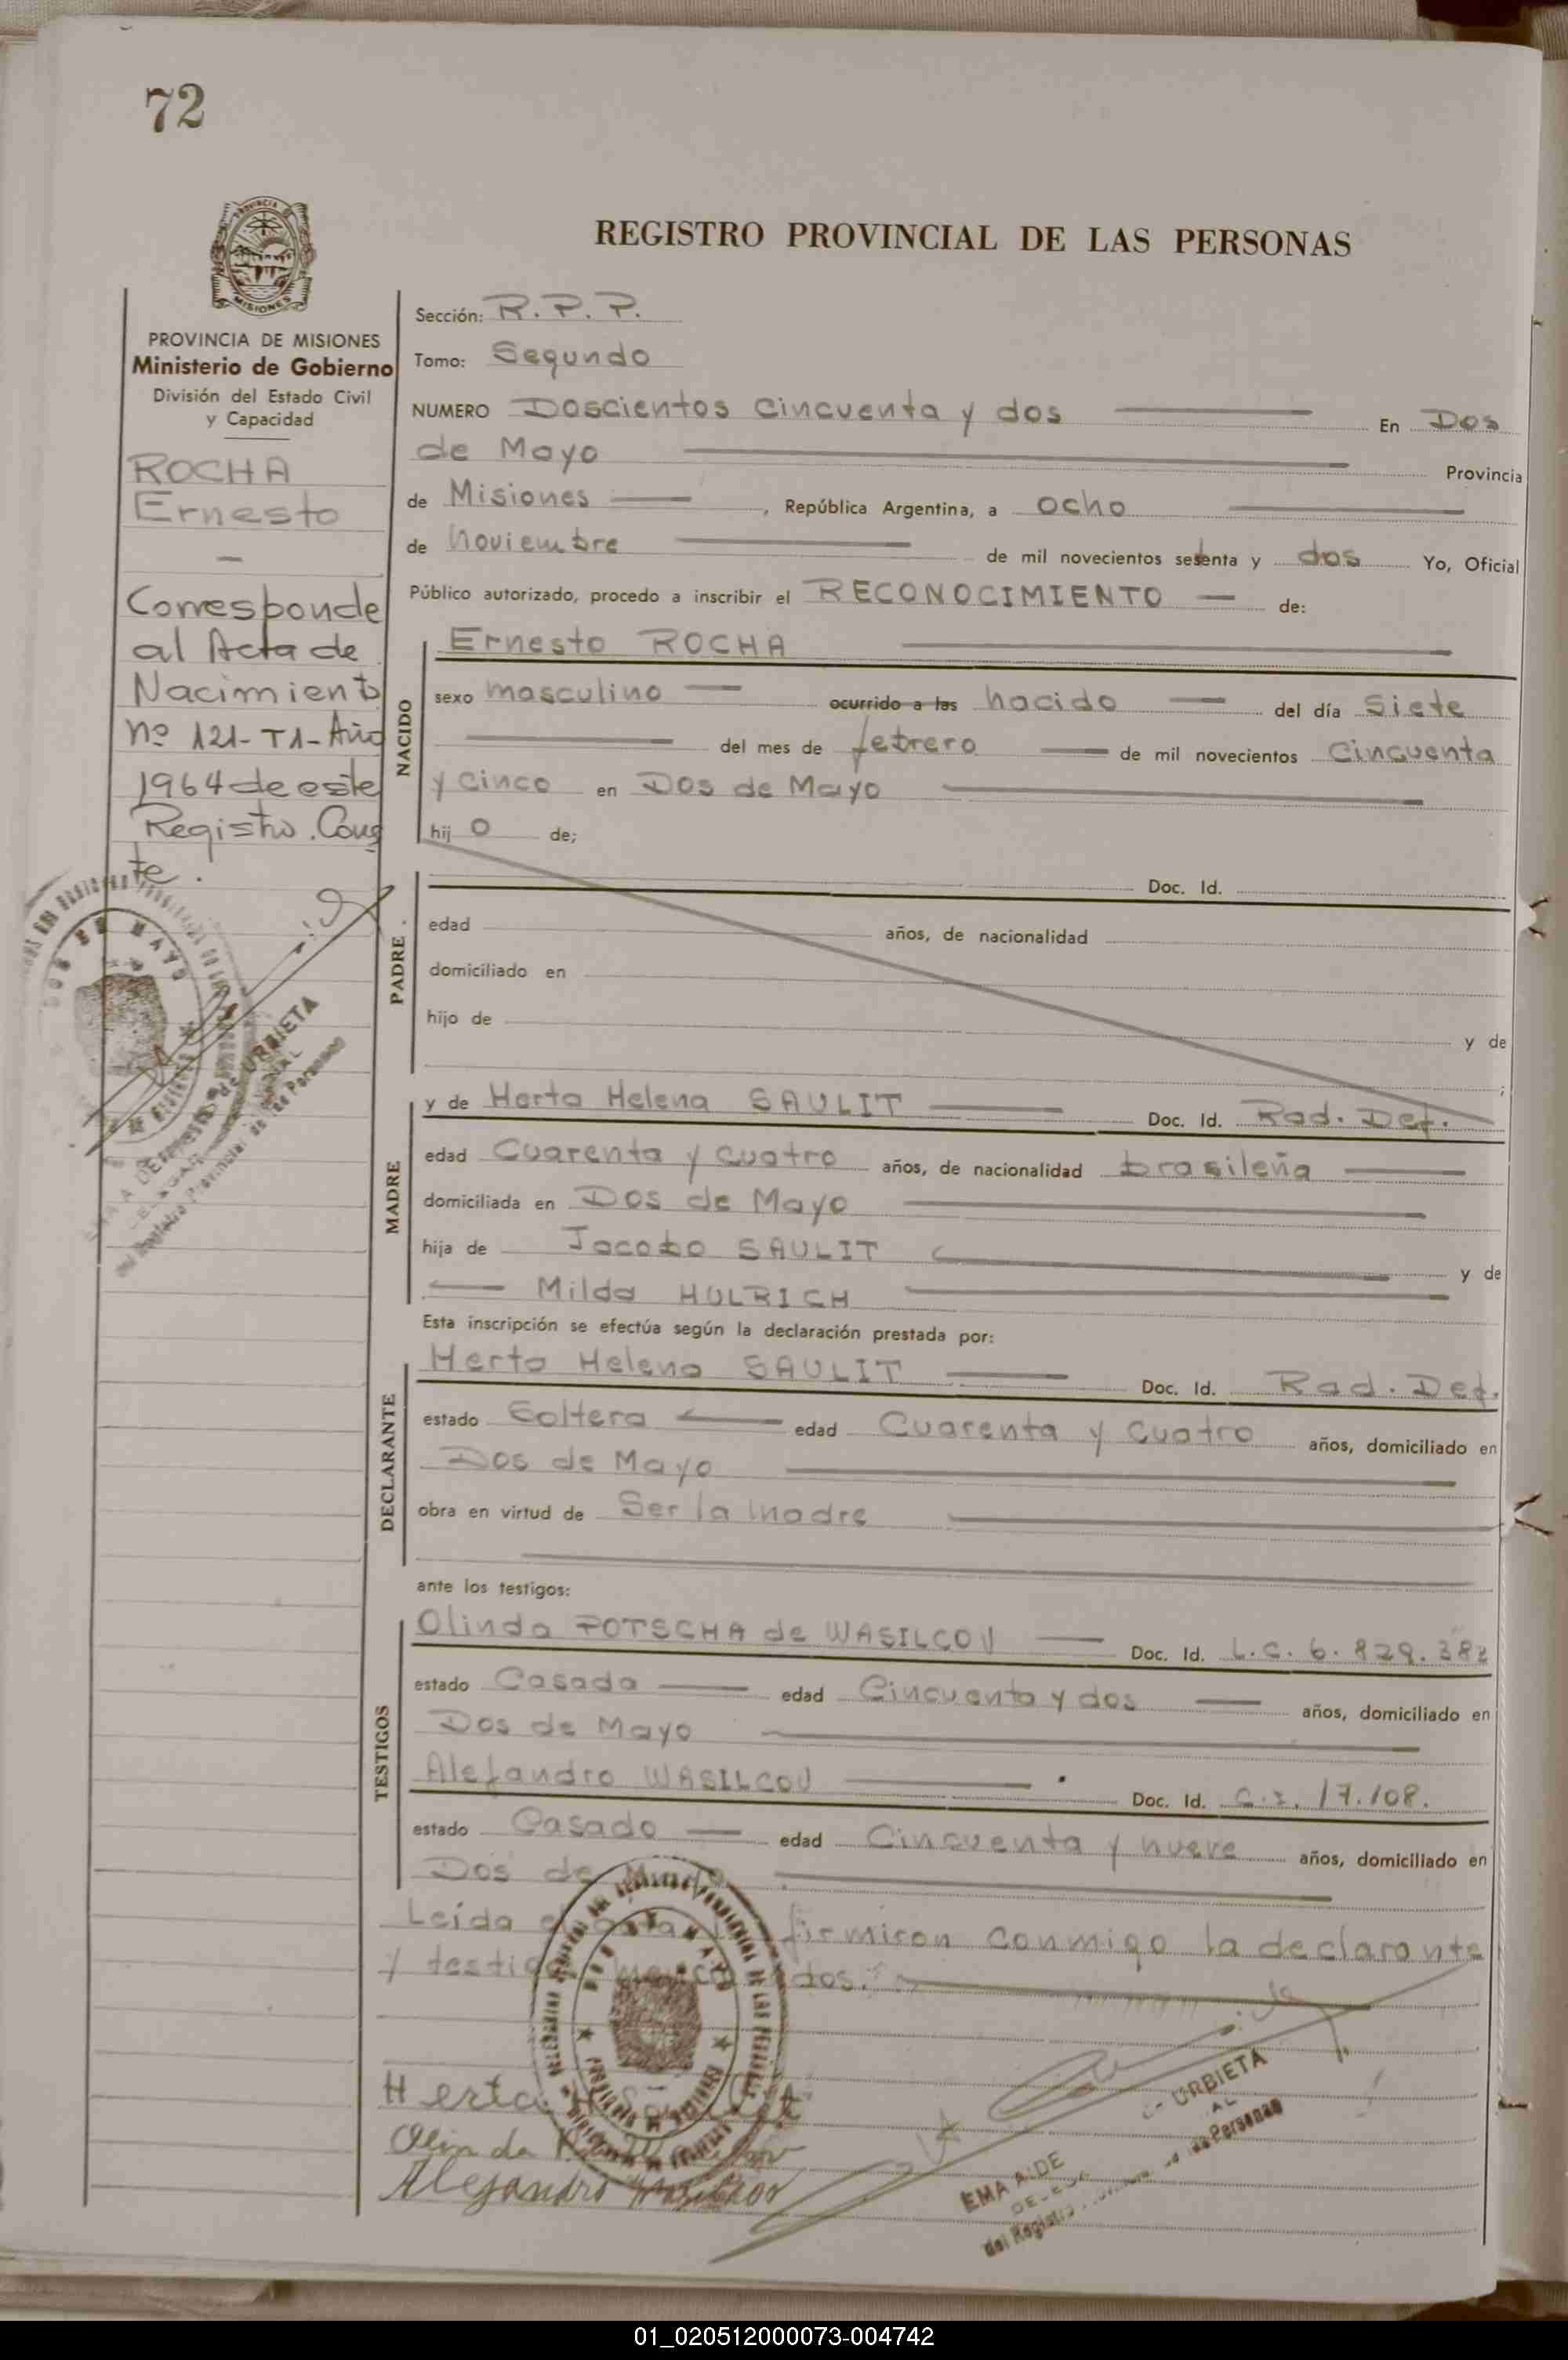 72
PROVINCIA
MISIONES
PROVINCIA DE MISIONES
Ministerio de Gobierno
División del Estado Civil
y Capacidad
ROCHA
Ernesto
—
Corresponde
al Acta de
Nacimiento
nº 121-T1-Año
1964 de este
Registro. Cons
te.
DOS DE MAYO
REGISTRO PROVINCIAL DE LAS PERSONAS
Sección: R.P.P.
Tomo: Segundo
NUMERO Doscientos cincuenta y dos En Dos
de Mayo Provincia
de Misiones, República Argentina, a ocho
de noviembre de mil novecientos setenta y dos Yo, Oficial
Público autorizado, procedo a inscribir el RECONOCIMIENTO de:
NACIDO
Ernesto ROCHA
sexo masculino ocurrido a las nacido del día siete
del mes de febrero de mil novecientos cincuenta
y cinco en Dos de Mayo
hij o de;
PADRE
Doc. Id.
edad años, de nacionalidad
domiciliado en
hijo de y de
;
MADRE
y de Herta Helena SAULIT Doc. Id. Rad. Def.
edad Cuarenta y cuatro años, de nacionalidad brasileña
domiciliada en Dos de Mayo
hija de Jacobo SAULIT y de
Milda HULRICH
Esta inscripción se efectúa según la declaración prestada por:
DECLARANTE
Herta Helena SAULIT Doc. Id. Rad. Def.
estado Soltera edad Cuarenta y cuatro años, domiciliado en
Dos de Mayo
obra en virtud de Ser la madre
ante los testigos:
TESTIGOS
Olinda POTSCHA de WASILCOV Doc. Id. L.C. 6.829.382
estado Casada edad Cincuenta y dos años, domiciliado en
Dos de Mayo
Alejandro WASILCOV Doc. Id. C.I. 17.108.
estado Casado edad Cincuenta y nueve años, domiciliado en
Dos de Mayo
Leída el acta firmaron conmigo la declarante
y testigos mencionados.
Herta
Olinda
Alejandro Wasilcov
URBIETA
EMA A. DE
del Registro de Personas
01_020512000073-004742